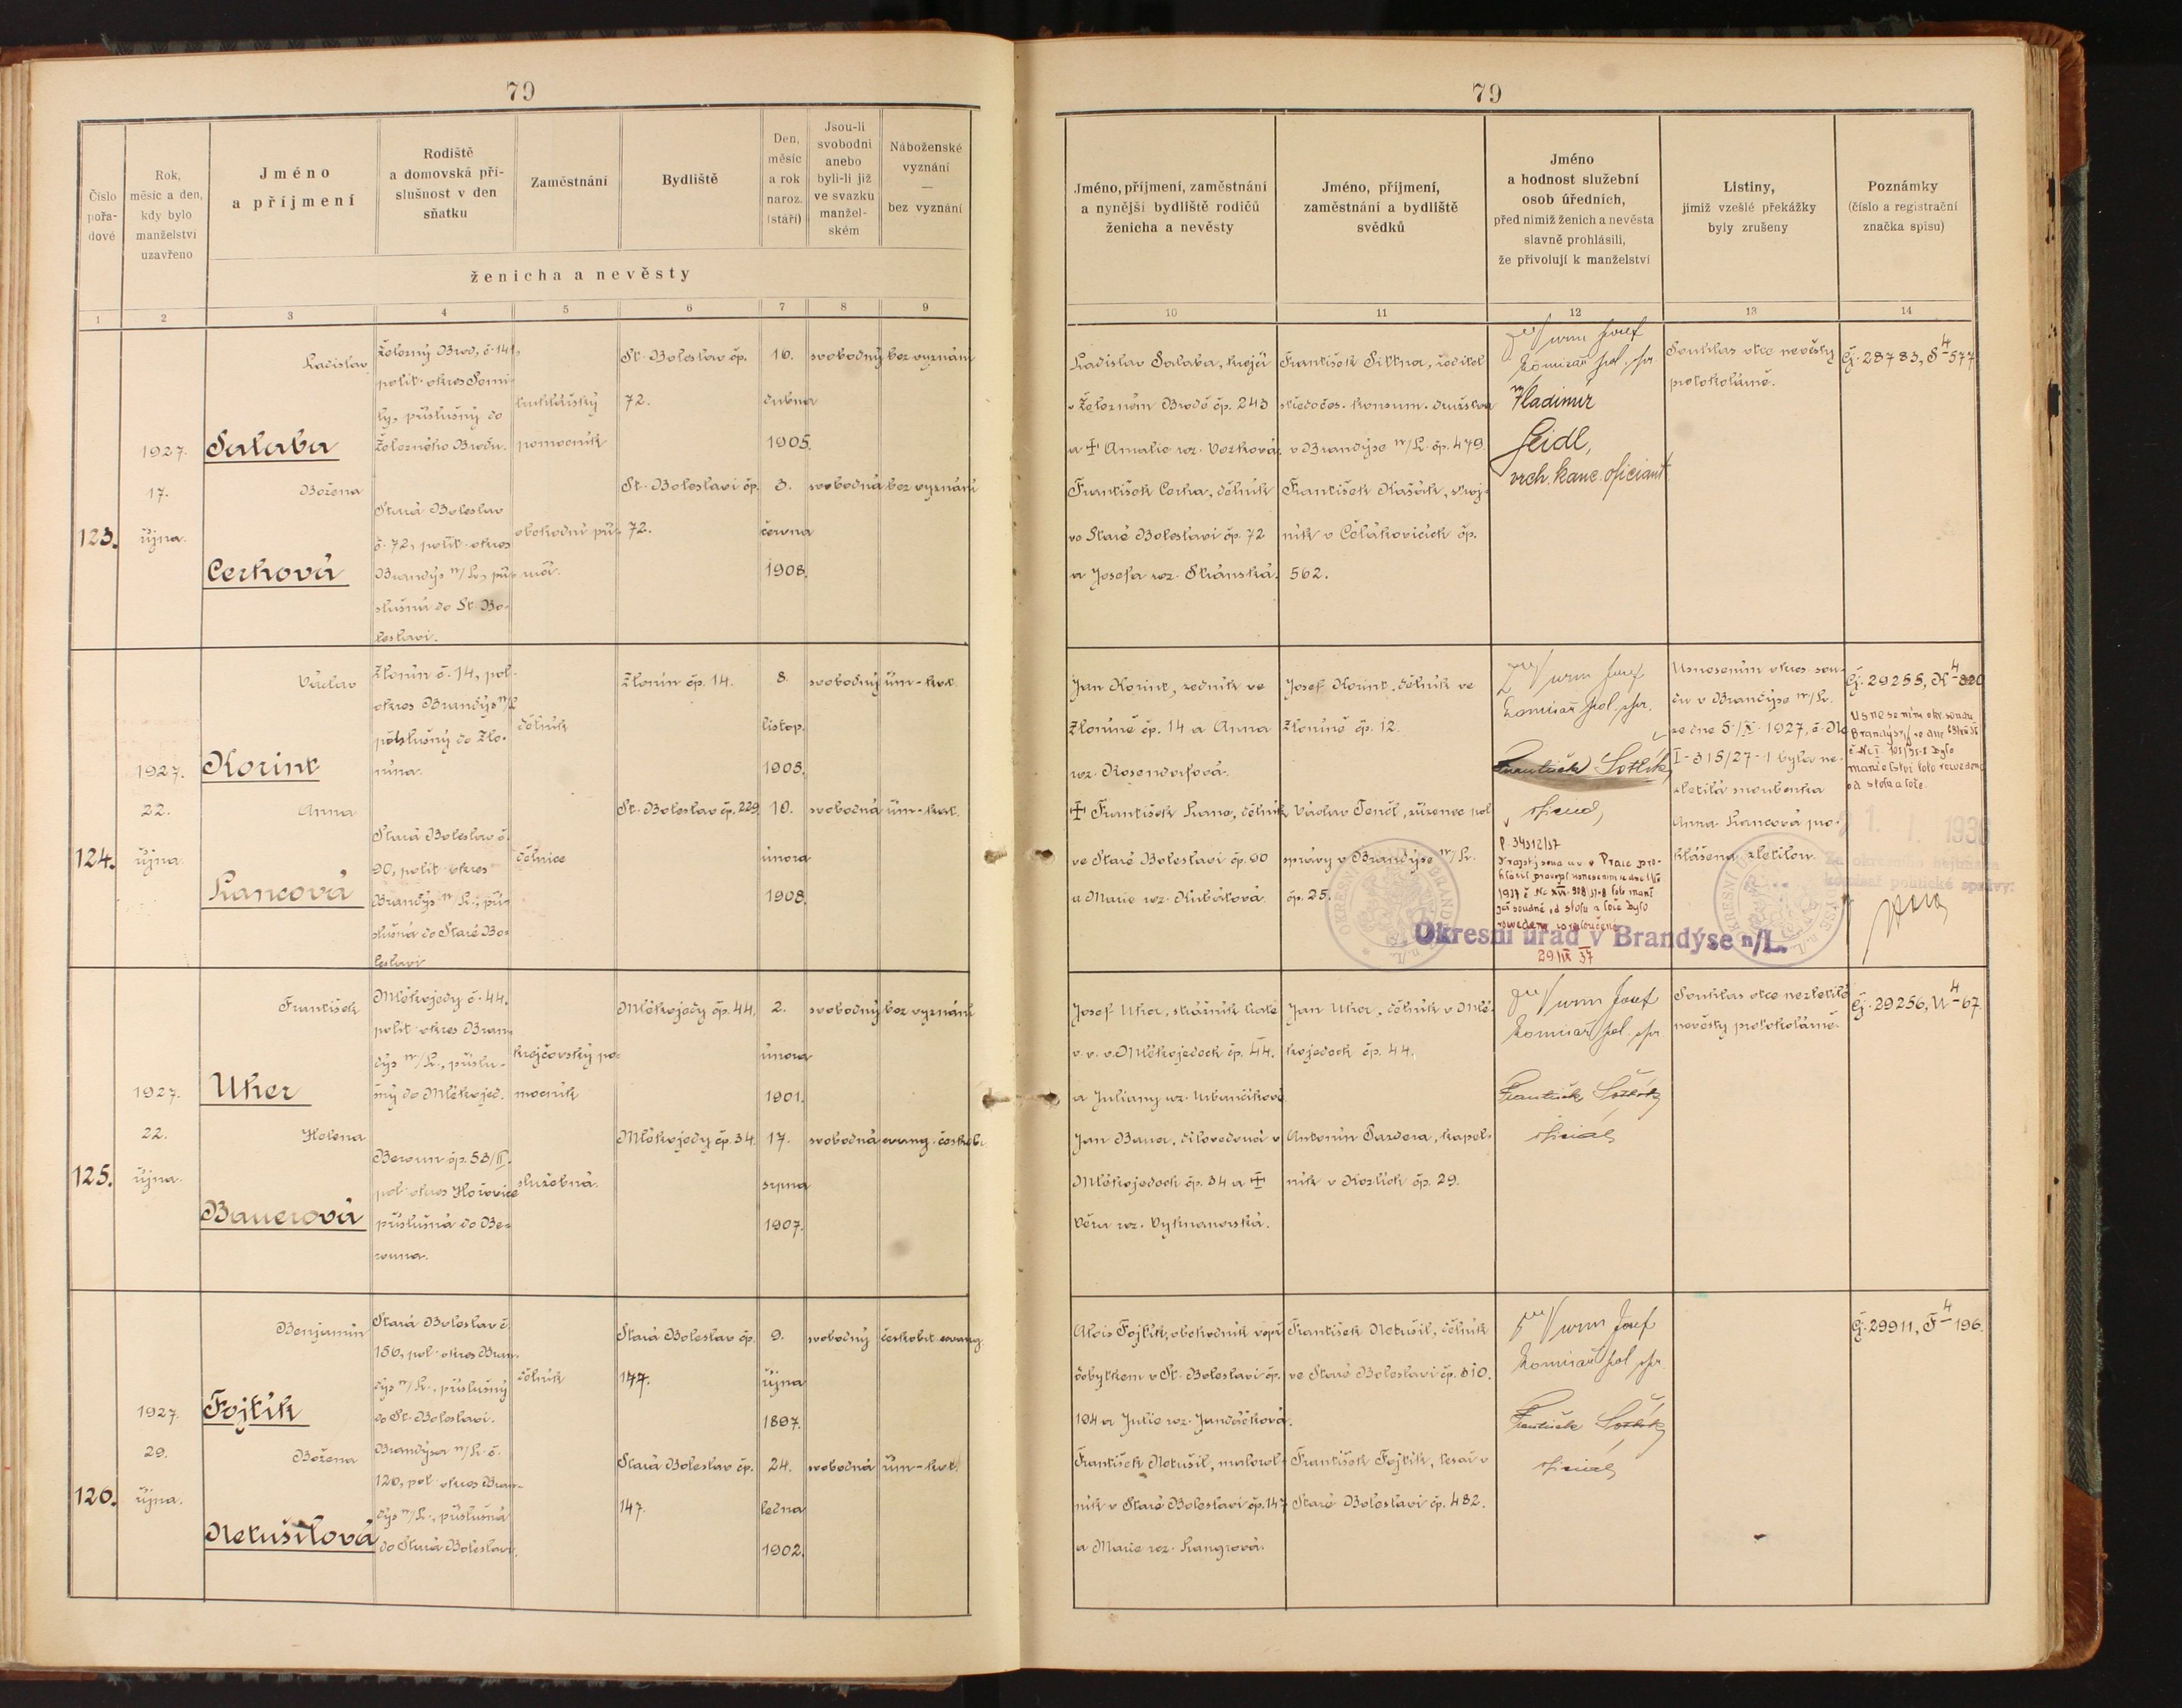 79
Číslo pořa-dové
Rok, měsíc a den, kdy bylo manželství uzavřeno
Jméno a příjmení
Rodiště a domovská pří-slušnost v den sňatku
Zaměstnání
Bydliště
Den, měsíc a rok naroz. (stáří)
Jsou-li svobodni anebo byli-li již ve svazku manžel-ském
Náboženské vyznání — bez vyznání
ženicha a nevěsty
1 2 3 4 5 6 7 8 9
123.
1927.
17.
října.
Ladislav
Salaba
Železný Brod, č. 141,
polit. okres Semi-
ly, příslušný do
Železného Brodu.
truhlářský
pomocník
St. Boleslav čp.
72.
16.
dubna
1905.
svobodný
bez vyznání
Božena
Cerhová
Stará Boleslav
č. 72, polit. okres
Brandýs n/L., pří-
slušná do St. Bo-
leslavi.
obchodní pří-
ručí.
St. Boleslavi čp.
72.
3.
června
1908.
svobodná
bez vyznání
124.
1927.
22.
října
Václav
Korint
Zlonín č. 14, pol.
okres Brandýs n/L
příslušný do Zlo-
nína.
dělník
Zlonín čp. 14.
8.
listop.
1903.
svobodný
řím-kat.
Anna
Lancová
Stará Boleslav č.
90, polit. okres
Brandýs n/L., pří-
slušná do Staré Bo-
leslavi
dělnice
St. Boleslav čp. 229
10.
února
1908.
svobodná
řím-kat.
125.
1927.
22.
října.
František
Uher
Mlékojedy č. 44.
polit. okres Bran-
dýs n/L., příslu-
šný do Mlékojed.
krejčovský po-
mocník
Mlékojedy čp. 44.
2.
února
1901.
svobodný
bez vyznání
Helena
Bauerová
Beroun čp. 53/II.
pol. okres Hořovice
příslušná do Be-
rouna.
služebná.
Mlékojedy čp. 34.
17.
srpna
1907.
svobodná
evang. českobr.
126.
1927.
29.
října.
Benjamin
Fojtík
Stará Boleslav č.
156, pol. okres Bran-
dýs n/L., příslušný
do St. Boleslavi.
dělník
Stará Boleslav čp.
147.
9.
října
1897.
svobodný
českobr. evang.
Božena
Netušilová
Brandýsa n/L. č.
120, pol. okres Bran-
dýs n/L., příslušná
do Stará Boleslavi.
Stará Boleslav čp.
147.
24.
ledna
1902.
svobodná
řím-kat.
79
Jméno, příjmení, zaměstnání a nynější bydliště rodičů ženicha a nevěsty
Jméno, příjmení, zaměstnání a bydliště svědků
Jméno a hodnost služební osob úředních, před nimiž ženich a nevěsta slavně prohlásili, že přivolují k manželství
Listiny, jimiž vzešlé překážky byly zrušeny
Poznámky (číslo a registrační značka spisu)
10 11 12 13 14
Ladislav Salaba, krejčí
v Železném Brodě čp. 243
a † Amalie roz. Vozková.
František Cerha, dělník
ve Staré Boleslavi čp. 72
a Josefa roz. Stránská.
František Sittna, ředitel
středočes. konsum. družstva
v Brandýse n/L. čp. 479.
František Kašák, stroj-
ník v Čelákovicích čp.
562.
Wurm Josef
komisař pol. spr.
Vladimír
Seidl,
vrch. kanc. oficiant
Souhlas otce nevěsty
protokolárně.
Čj. 28783, S 4-577
Jan Korint, rolník ve
Zloníně čp. 14 a Anna
roz. Rosendorfová.
† František Lanc, dělník
ve Staré Boleslavi čp. 90
a Marie roz. Kubátová.
Josef Korint, dělník ve
Zloníně čp. 12.
Václav Tenčl, zřízenec pol
správy v Brandýse n/L.
čp. 25.
Wurm Josef
komisař pol. spr.
František
oficiál
P. 34312/37
Krajský soud
1937
soudně od stolu a lože bylo
29/IX 37
Okresní úřad v Brandýse n/L.
OKRESNÍ
Usnesením okres. sou-
du v Brandýse n/L.
ze dne 5./X. 1927, č. Nc
I-315/27-1 byla ne-
zletilá snoubenka
Anna Lancová pro-
hlášena zletilou.
Čj. 29255, K 4-320
Usnesením okr. soudu
Brandýs n/L ze dne
bylo
manželství toto rozvedeno
od stolu a lože.
Za okresního hejtmana
komisař politické správy:
Josef Uher, strážník trati
v. v. v Mlékojedech čp. 44.
a Juliany roz. Urbančíková.
Jan Bauer, dílovedoucí v
Mlékojedech čp. 34 a †
Věra roz. Vyhnanovská.
Jan Uher, dělník v Mlé-
kojedech čp. 44.
Antonín Sazdera, kapel-
ník v Kozlích čp. 29.
Wurm Josef
komisař pol. spr
František
oficiál
Souhlas otce nezletilé
nevěsty protokolárně.
Čj. 29256, U 4-67.
Alois Fojtík, obchodník
dobytkem v St. Boleslavi čp.
194 a Julie roz. Jundáčková.
František Netušil, malorol-
ník v Staré Boleslavi čp. 147
a Marie roz. Langrová.
František Netušil, dělník
ve Staré Boleslavi čp. 310.
František Fojtík, tesař v
Staré Boleslavi čp. 482.
Wurm Josef
komisař pol. spr.
František
oficiál
Čj. 29911, F 4-196.